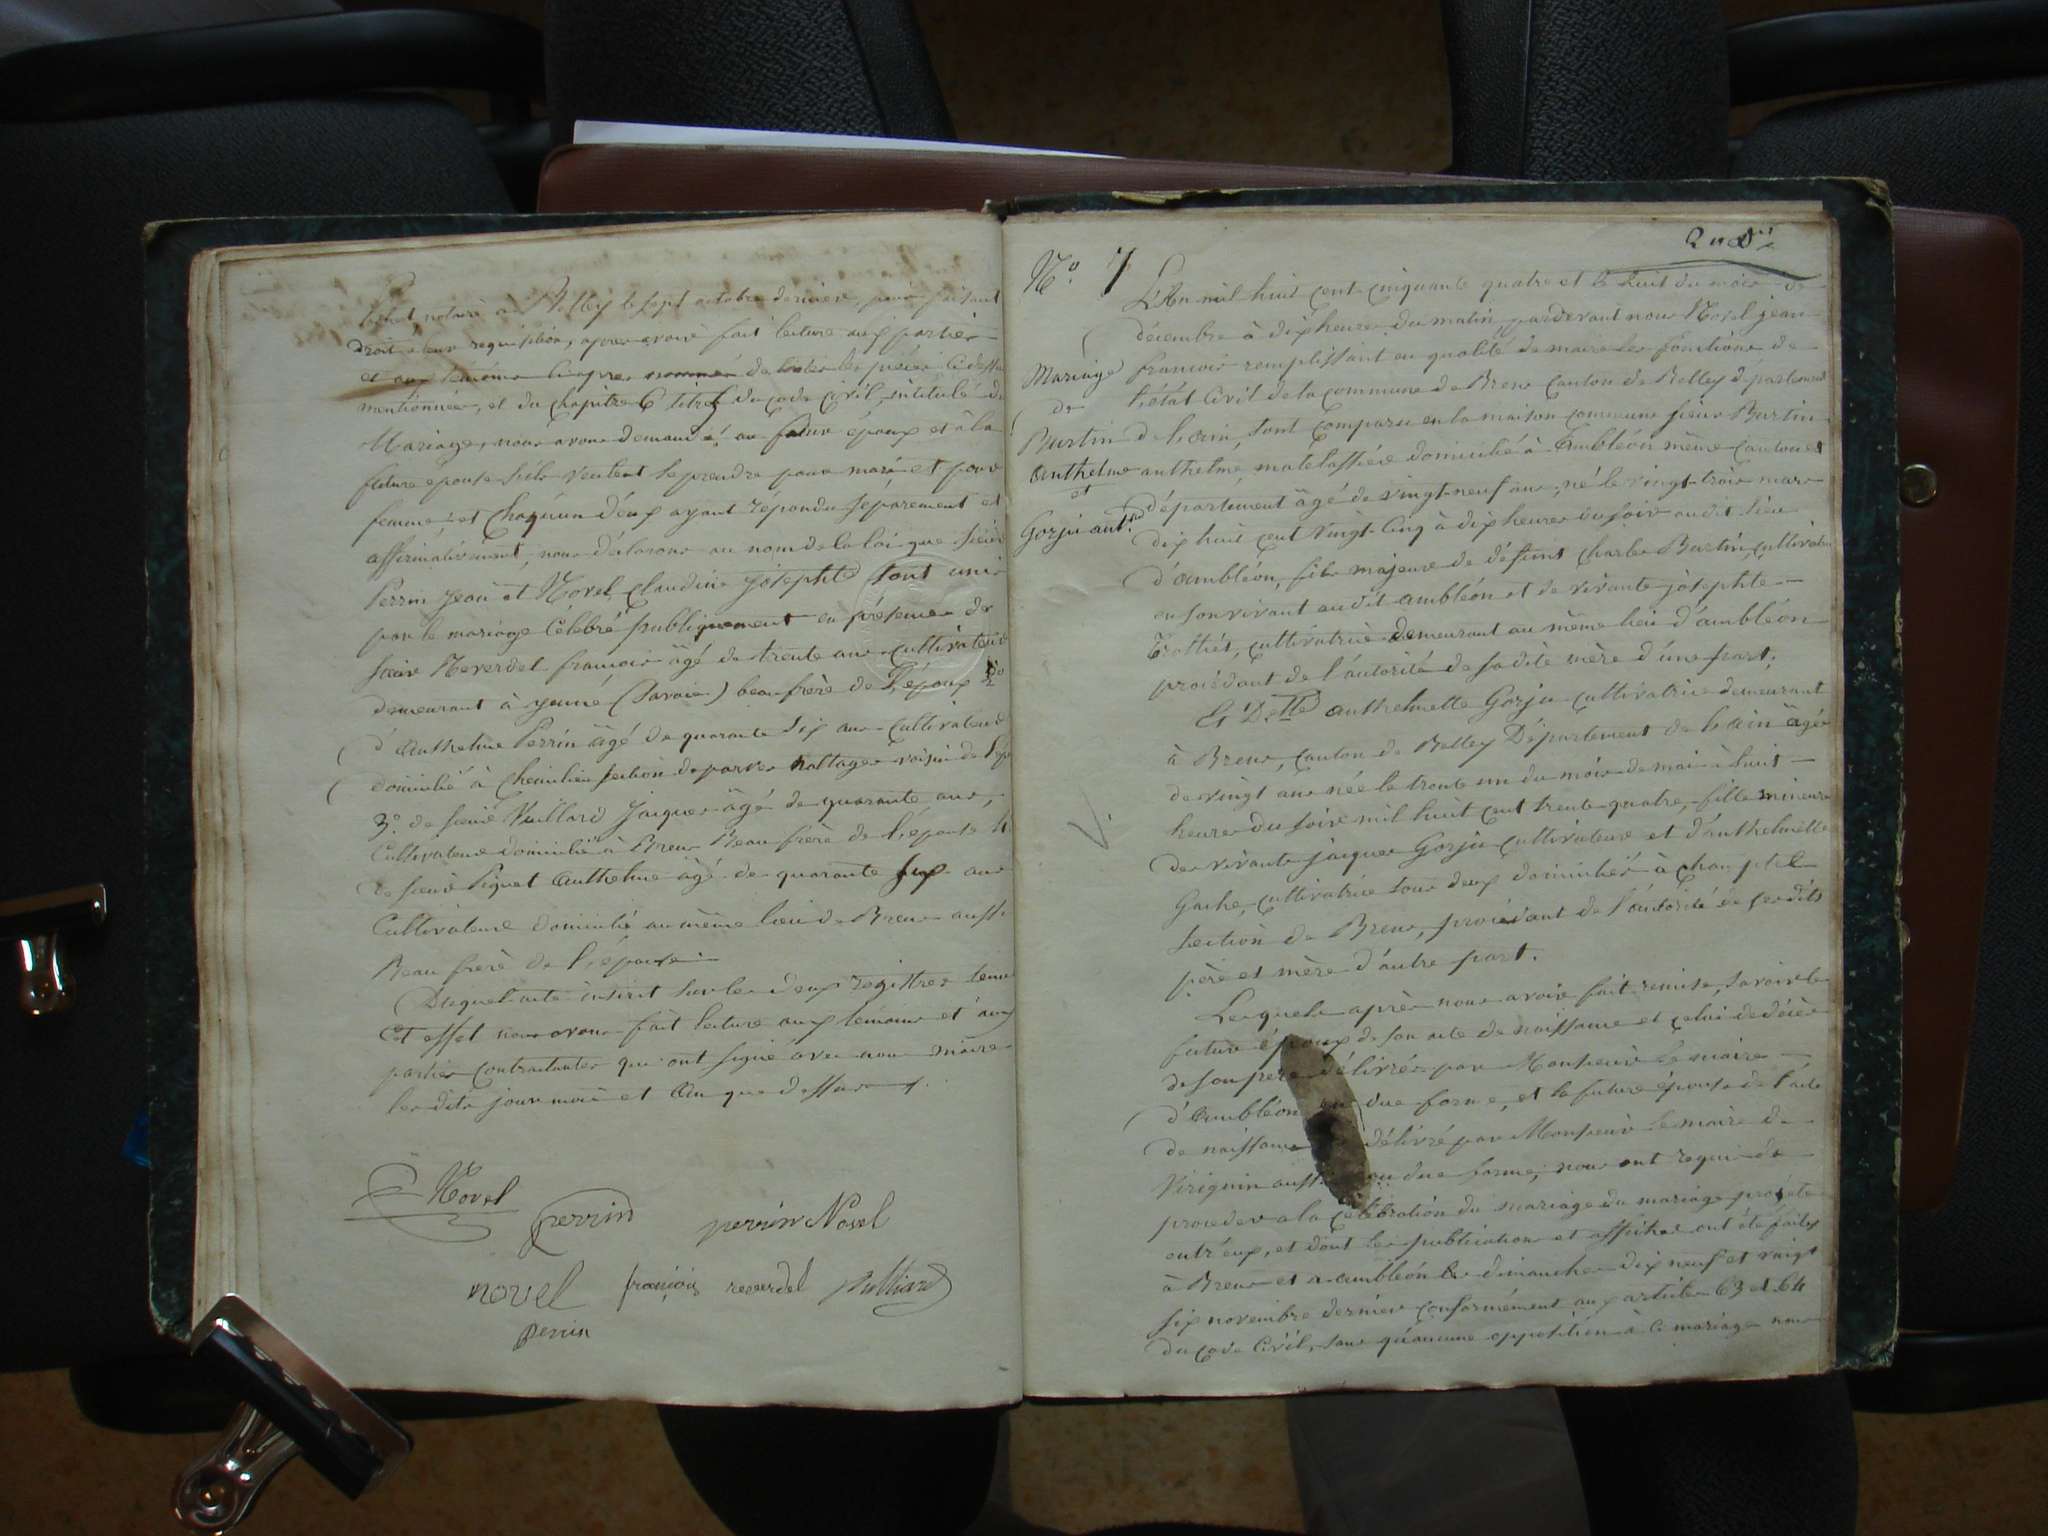 notaire à Belley le sept octobre dernier, pour faisant
droit à leur requisition, apres avoir fait lecture aux parties
et aux témoins ci-apres nommés de toutes les pièces ci dessus
mentionnées, et du chapitre 6 titre du code civil, intitulé du
Mariage, nous avons demandé au futur époux et à la
future epouse s'ils veulent se prendre pour mari et pour
femme et chaqu'un d'eux ayant répondu séparement et
affirmativement, nous déclarons au nom de la loi que sieur
Perrin Jean et Novel Claudine josephte sont unis
par le mariage célébré publiquement en présence de
sieur Reverdel françois âgé de trente ans cultivateur
demeurant à yenne (Savoie) beau frère de l'époux 2°
d'Anthelme Perrin âgé de quarante six ans cultivateur
domicilié à section de parves Nattages voisin de
3° de sieur Vulliard Jacques âgé de quarante ans,
Cultivateur domicilié à Brens Beau frère de l'épouse
de sieur Piguet Anthelme âgé de quarante ans
Cultivateur domicilié au même lieu de Brens aussi
Beau frère de l'épouse
Duquel acte inscrit sur les deux registres tenus
cet effet nous avons fait lecture aux témoins et aux
parties contractantes qui ont signé avec nous maire
les dits jour mois et an que dessus
Novel
perrin
perrin Novel
novel
françois reverdel
Vulliard
perrin
N.° 7
L'An mil huit cent cinquante quatre et le huit du mois de
décembre à dix heures du matin, pardevant nous Novel jean
françois remplissant en qualité de maire les fonctions de
l'état Civil de la commune de Brens Canton de Belley département
de l'ain, sont comparu en la maison commune sieur Burtin
anthelme, matelassier domicilié à Ambléon même canton et
département âgé de vingt-neuf ans, né le vingt-trois mars
dix huit cent vingt-cinq à dix heures du soir au dit lieu
d'ambléon, fils majeur de défunt Charles Burtin, cultivateur
en son vivant au dit ambléon et de vivante josephte
cultivatrice demeurant au même lieu d'ambléon
procédant de l'autorité de sa dite mère d'une part,
Mariage
de
Burtin
Anthelme
et
Gorju ant.
Et D.elle anthelmette Gorju cultivatrice demeurant
à Brens, canton de Belley Département de l'ain âgée
de vingt ans née le trente un du mois de mai à huit
heures du soir mil huit cent trente quatre, fille mineure
de vivants jacques Gorju cultivateur et d'anthelmette
Gache, cultivatrice tous deux domiciliés à
section de Brens, procédant de l'autorité de ses dits
père et mère d'autre part.
Lesquels après nous avoir fait remise, savoir le
futur époux de son acte de naissance et celui de décès
de son père délivrés par Monsieur le maire
d'ambléon en due forme, et la future épouse de l'acte
de naissance délivré par Monsieur le maire de
Virignin aussi en due forme, nous ont requis de
proceder a la célébration du mariage du mariage projeté
entr'eux, et dont les publications et affiches ont été faites
à Brens et a ambléon les dimanches dix neuf et vingt
six novembre dernier conformément aux articles 63 et 64
du code Civil, sans qu'aucune opposition à ce mariage nous